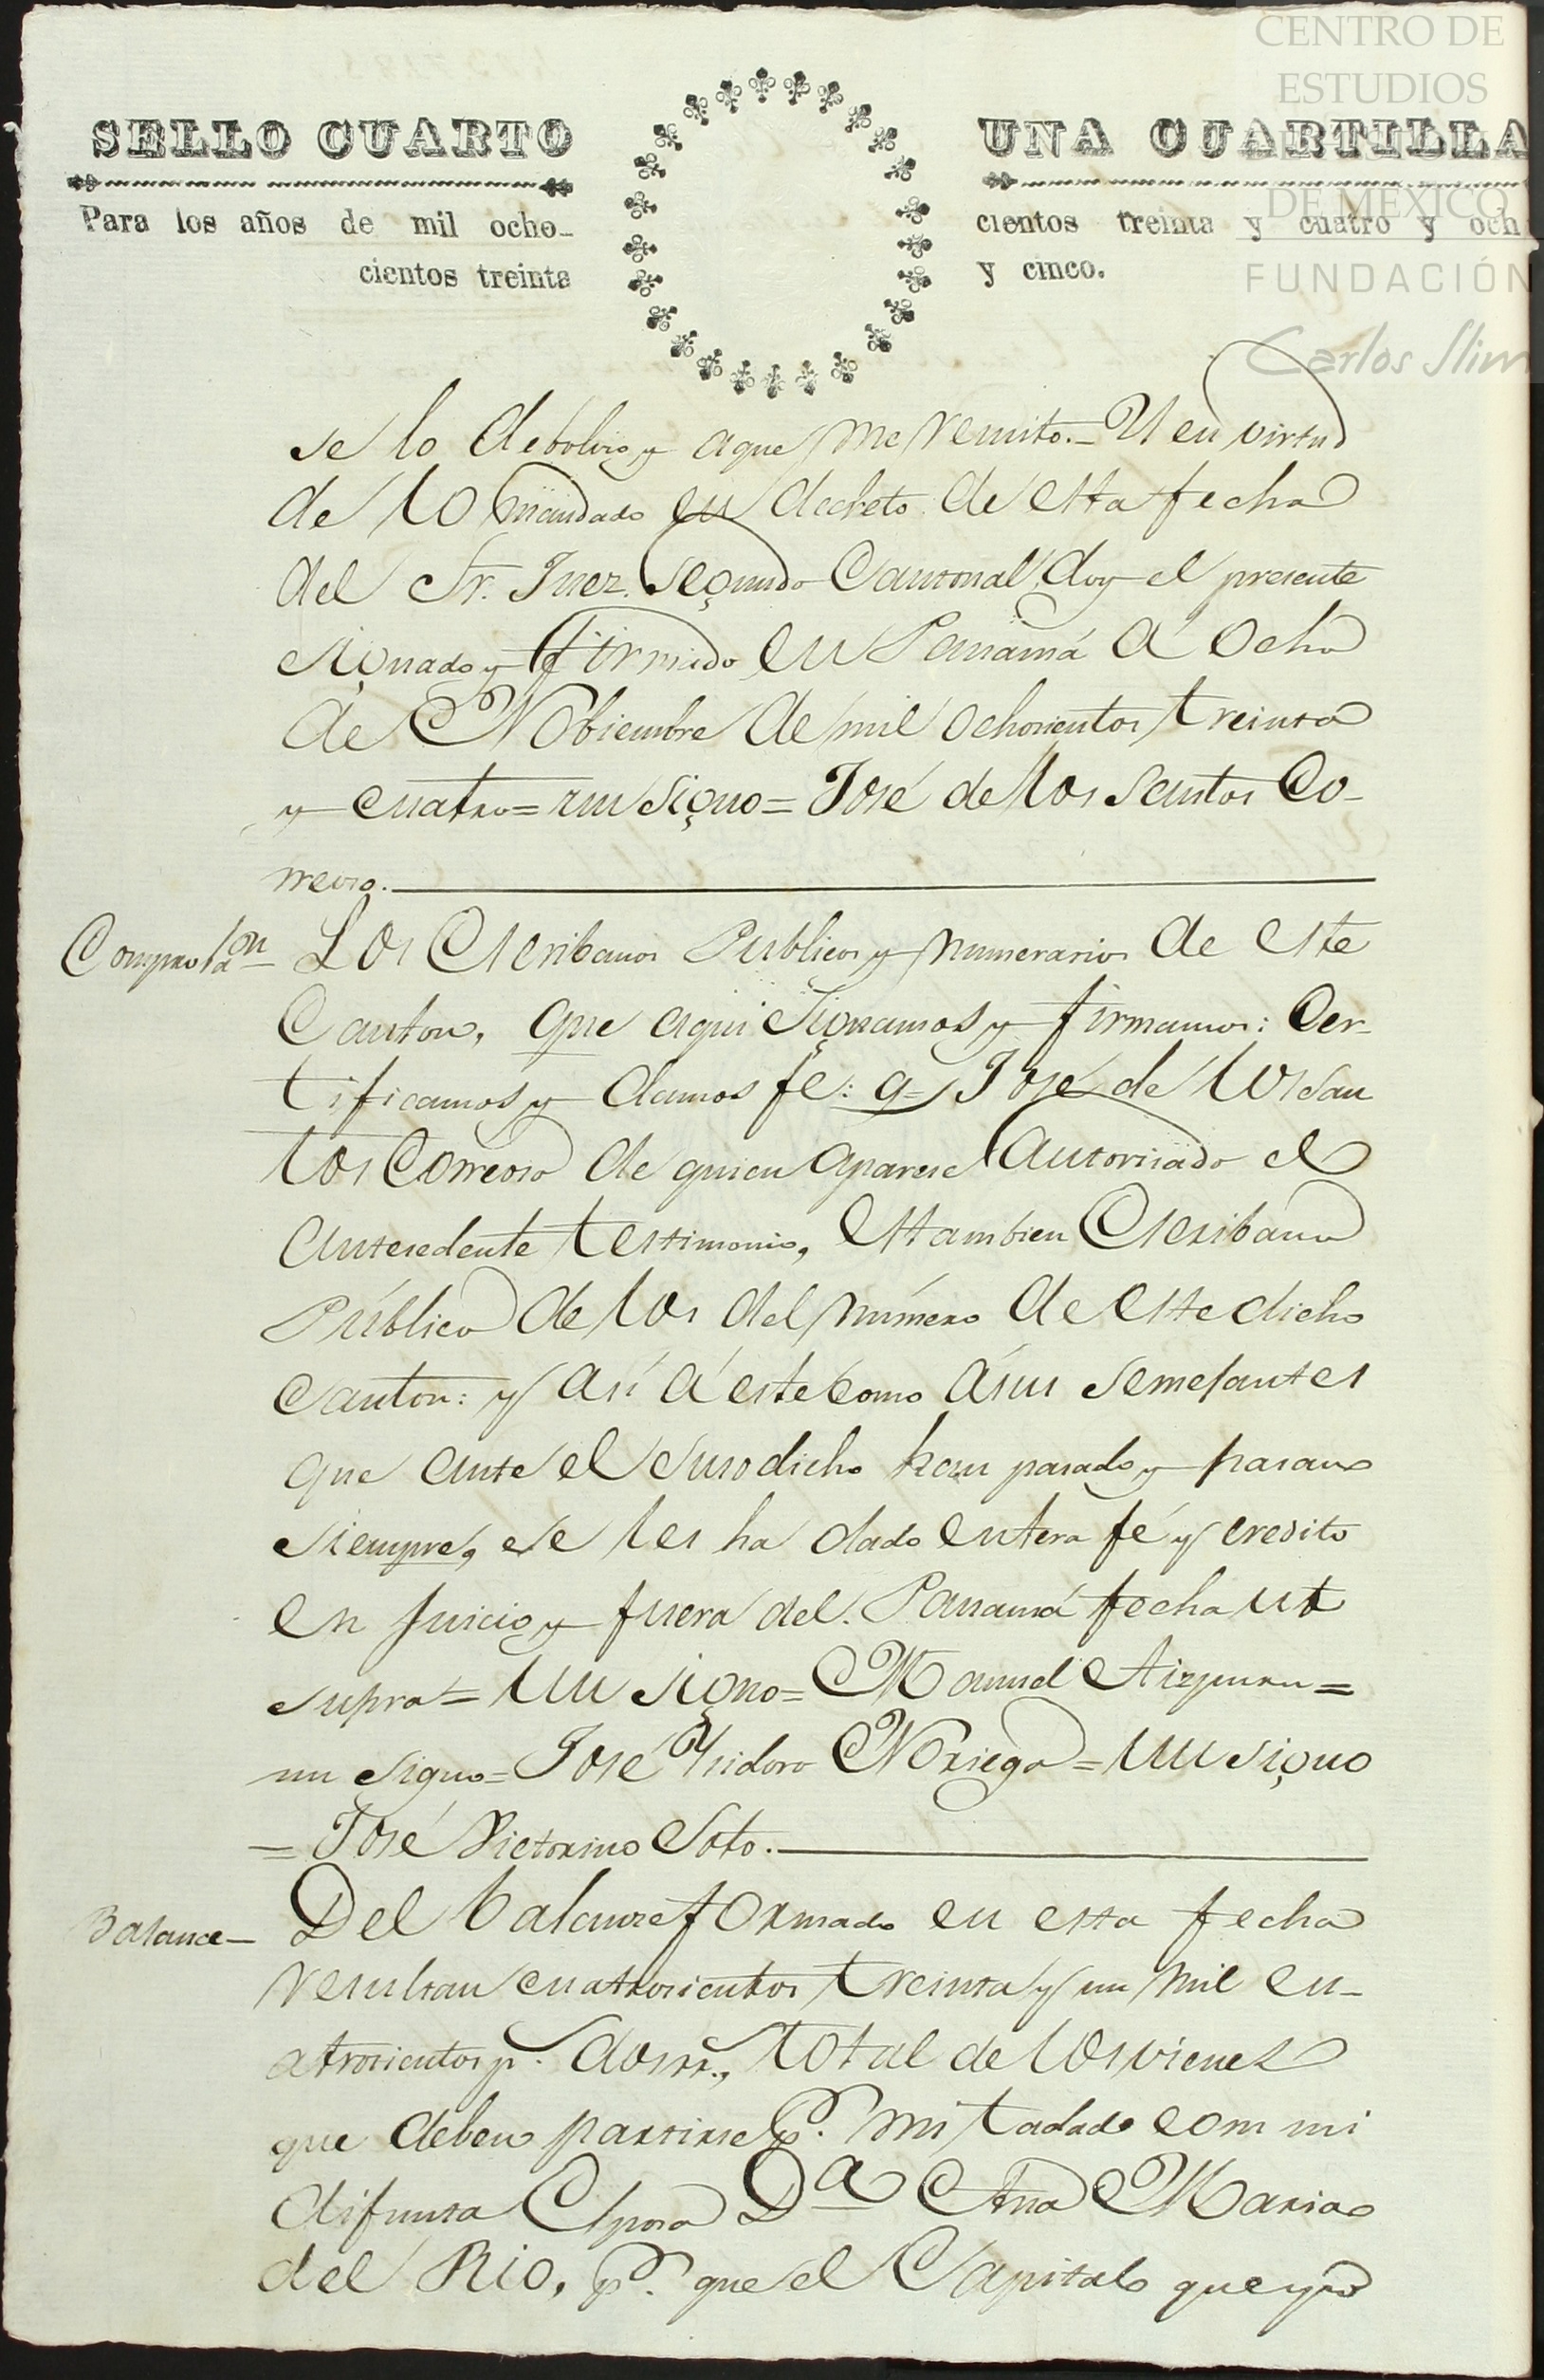 CENTRO DE
ESTUDIOS
DE MÉXICO
FUNDACIÓN
Carlos Slim
SELLO CUARTO
UNA CUARTILLA
Para los años de mil ocho-
cientos treinta
cientos treinta y cuatro y och
y cinco.
se lo debolvi y a que me remito.- Y en virtud
de lo mandado en decreto de esta fecha
del Sr. Juez Segundo Cantonal, doy el presente
signado y firmado en Panamá á ocho
de Nobiembre de mil ochocientos treinta
y cuatro = un signo = José de los Santos Co-
rreoso.
Comprobaon Los Escribanos Publicos y numerarios de este
Canton, que aqui signamos y firmamos: Cer-
tificamos y damos fe: q= José de los San
tos Correoso de quien aparese autorisado el
antecedente testimonio, es tambien Escribano
Público de los del número de este dicho
Canton: y asi á este como á sus semejantes
que ante el susodicho han pasado y pasan
siempre, se les ha dado entera fé y credito
en juicio y fuera del. Panamá fecha ut
supra = un signo = Manuel Aizpuru =
un signo = José Ysidoro Noriega = un signo
= José Victorino Soto.
Balance- Del balance formado en esta fecha
resultan cuatrocientos treinta y un mil cu-
atrocientos ps. dos rr., total de los vienes
que deben partirse p. mitad con mi
difunta Esposa Da Ana Maria
del Rio, p. que el Capital que yo